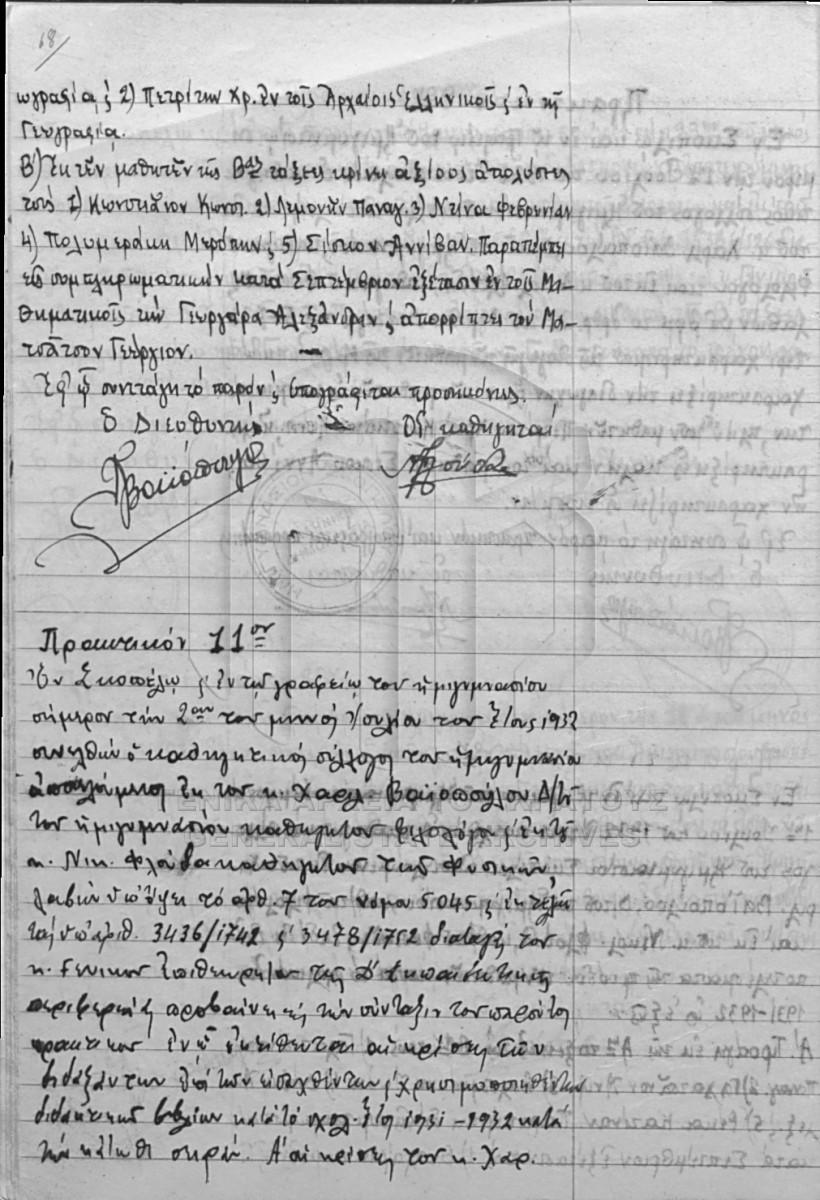 18
ωγραφία, ς 2) Πετρίτην Χρ. ἐν τοῖς Ἀρχαίοις Ἑλληνικοῖς ς ἐν τῇ
Γεωγραφίᾳ.
Β) Ἐκ τῶν μαθητῶν τῆς Βας τάξεως κρίνει ἀξίους ἀπολύσεως
τοὺς 1) Κωνστ. 2) Λεμονῆν Παναγ. 3) Ντίνου Φεβρωνίαν
4) Πολυμεράκη Μερόπην ς 5) Σίσκον Ἀννίβαν. Παραπέμπει
εἰς συμπληρωματικὴν κατὰ Σεπτέμβριον ἐξέτασιν ἐν τοῖς Μα-
θηματικοῖς τὴν Γεωργάρα Ἀλεξάνδραν ς ἀπορρίπτει τὸν Μα-
τσᾶτσον Γεώργιον.
Ἐφ' ᾧ συνετάγη τὸ παρὸν ς ὑπογράφεται προσηκόντως.
Ὁ Διευθυντὴς Οἱ καθηγηταὶ
Πρακτικὸν 11ον
Ἐν Σκοπέλῳ ς ἐν τῷ γραφείῳ τοῦ ἡμιγυμνασίου
σήμερον τὴν 2αν τοῦ μηνὸς Ἰουλίου τοῦ ἔτους 1932
συνελθὼν ὁ καθηγητικὸς σύλλογος τοῦ ἡμιγυμνασίου
ἀποτελούμενος ἐκ τοῦ κ. Χαρ. Βαϊοπούλου Δ/τοῦ
τοῦ ἡμιγυμνασίου καθηγητοῦ φιλολόγου ς ἐκ τοῦ
κ. Νικ. Φλούδα καθηγητοῦ τῶν Φυσικῶν,
λαβὼν ὑπ' ὄψει τὸ ἄρθ. 7 τοῦ νόμου 5045 ς
τὰς ὑπ' ἀριθ. 3436/1742 ς 3478/1752 διαταγὰς τοῦ
κ. Γενικοῦ Ἐπιθεωρητοῦ τῆς Δ' ἐκπαιδευτικῆς
περιφερείας προβαίνει εἰς τὴν σύνταξιν τοῦ παρόντος
πρακτικοῦ ἐν ᾧ ἐκτίθενται αἱ κρίσεις τῶν
διδαξάντων τῶν εἰσαχθέντων ς χρησιμοποιηθέντων
διδακτικῶν βιβλίων κατὰ τὸ σχολ. ἔτος 1931-1932 κατὰ
τὴν κάτωθι σειράν. Α' αἱ κρίσεις τοῦ κ. Χαρ.
ΓΕΝΙΚΑ ΑΡΧΕΙΑ ΤΟΥ ΚΡΑΤΟΥΣ
GENERAL STATE ARCHIVES